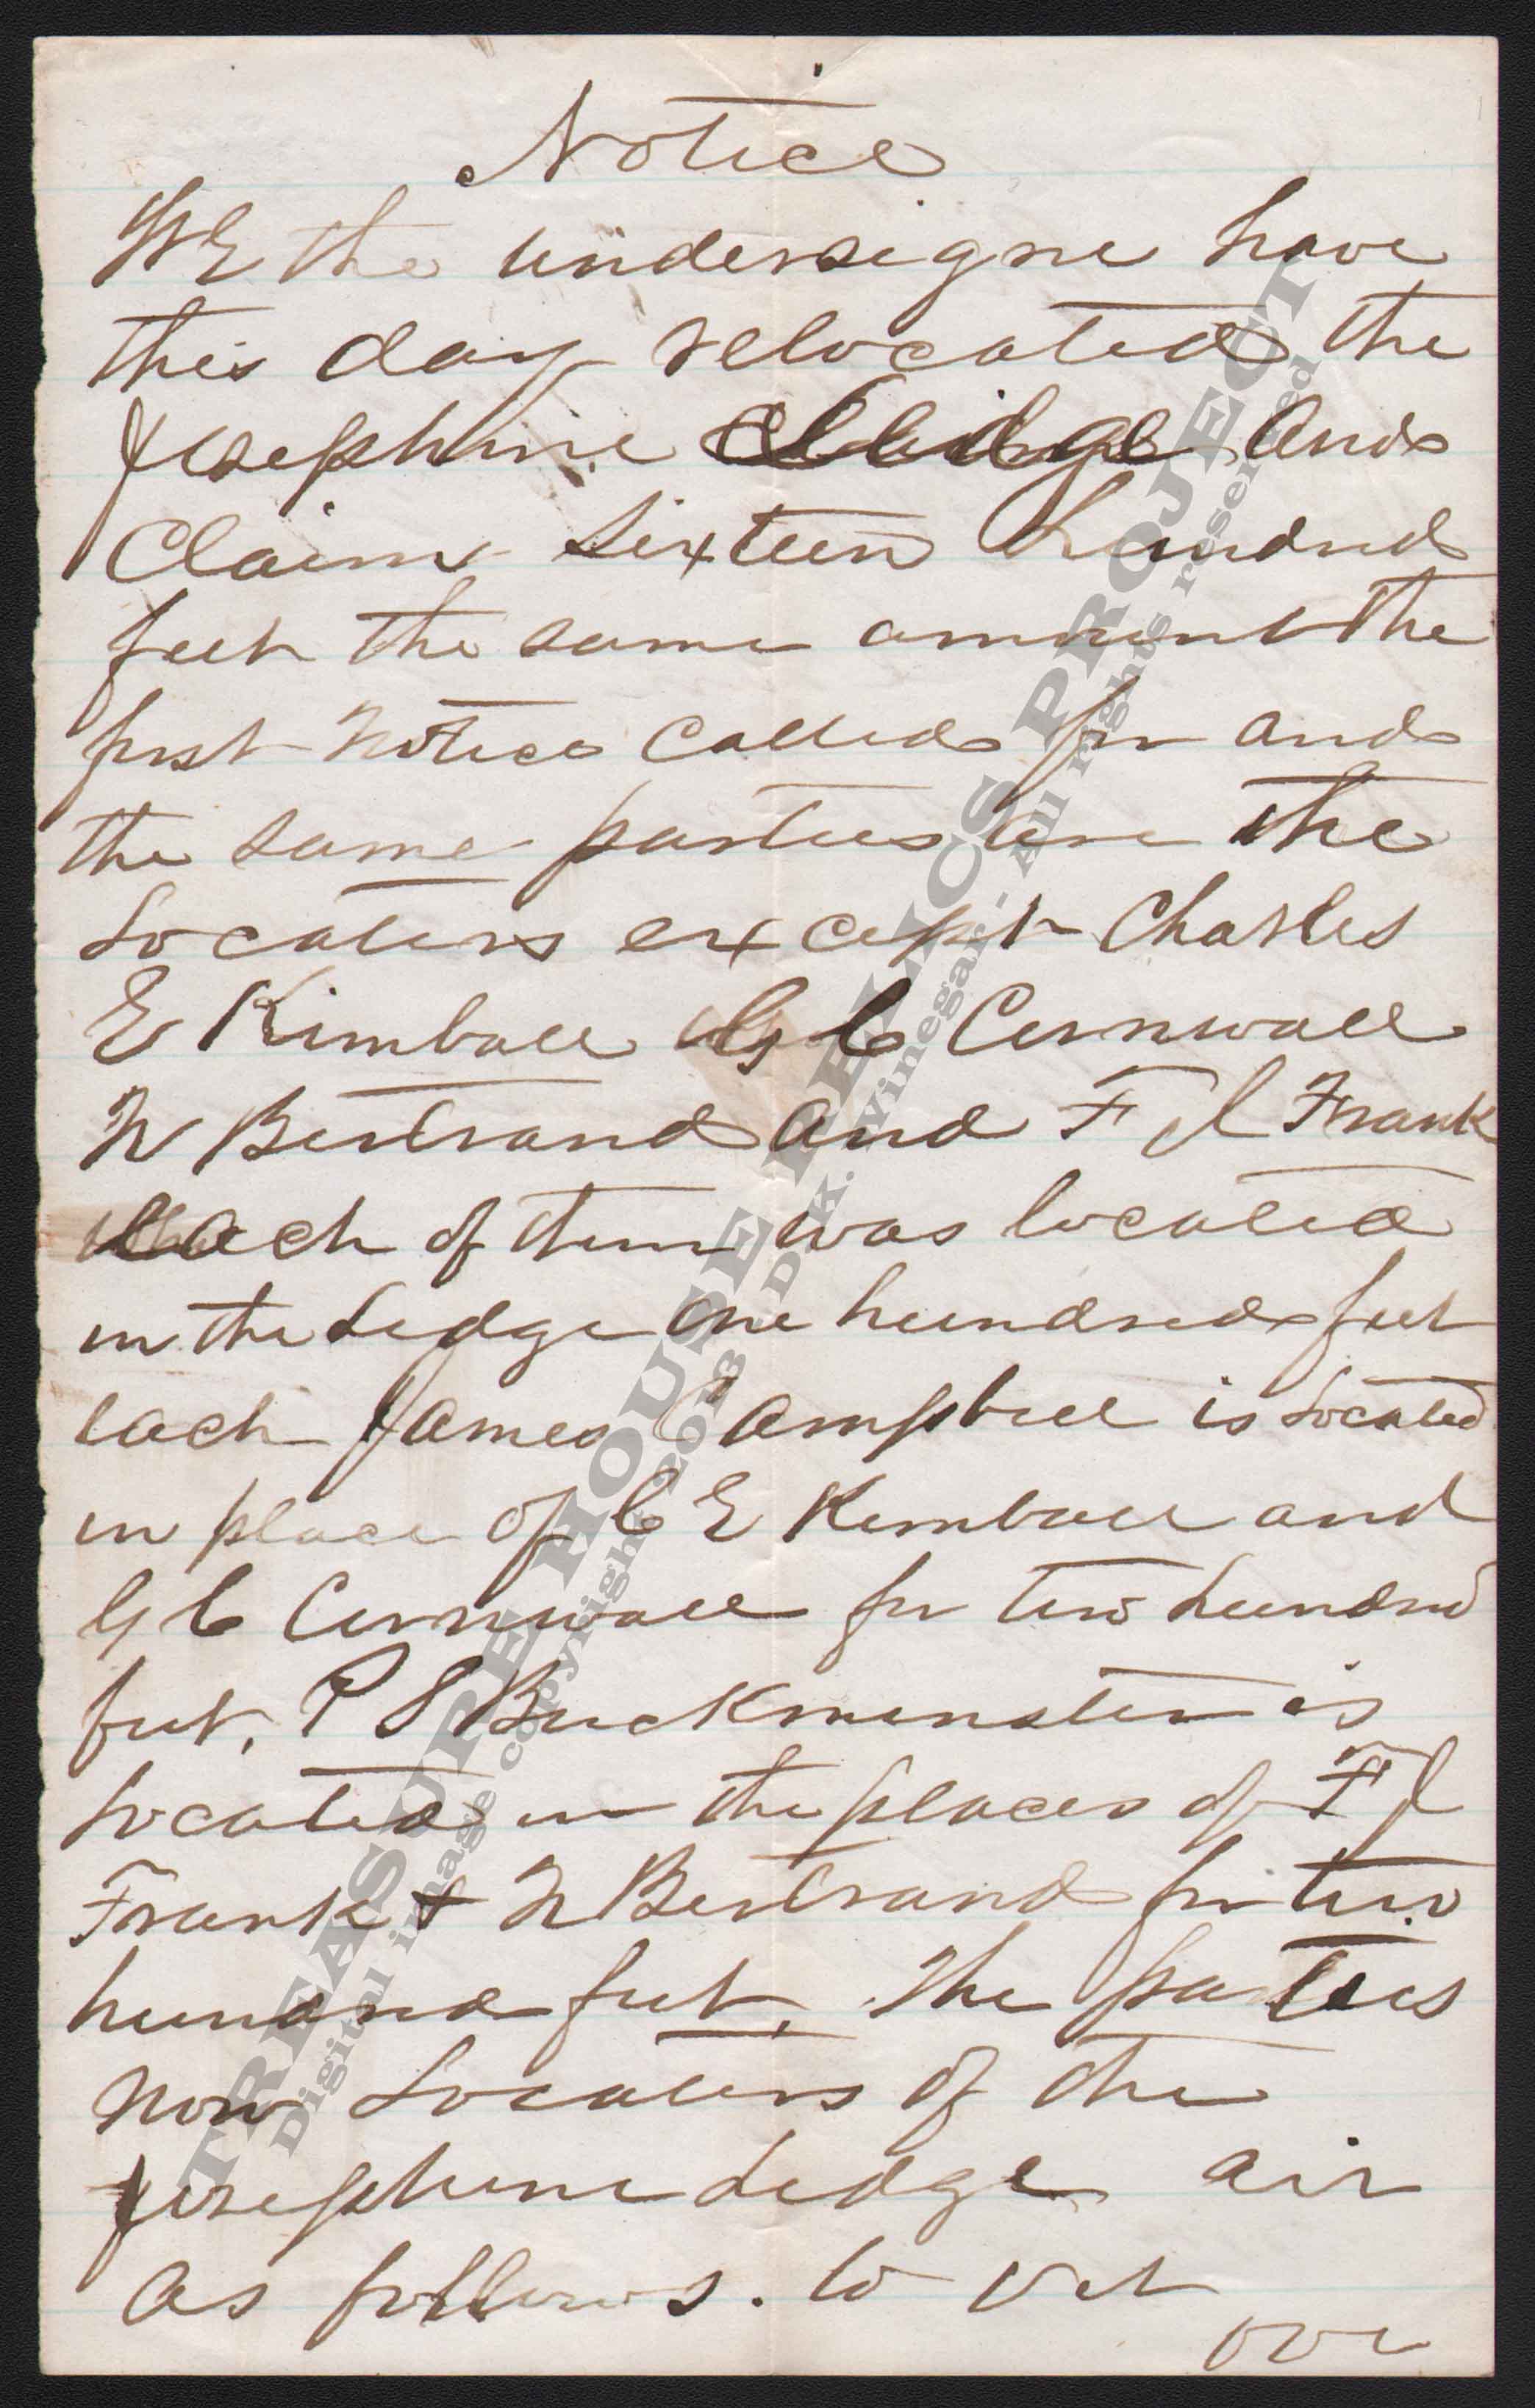 Notice
WE the undersigne have
this day relocated the
Josephine Ledge and
Claim Sixteen hundred
feet the same amount the
first notice called for and
the same parties are the
Locaters except Charles
E Kimball G C Cornwall
N Bertrand and F J Frank
each of them was located
in the Ledge one hundred feet
each James Campbell is Located
in place of C E Kimball and
G C Cornwall for two hundred
feet, P S Buckminster is
Located in the places of F J
Frank & N Bertrand for two
hundred feet, The parties
now Locaters of the
Josephine Ledge air
as follows. to Wit
ove
TREASURE HOUSE RELICS PROJECT
Digital image copyright 2013 D.K. Vinegar - All rights reserved